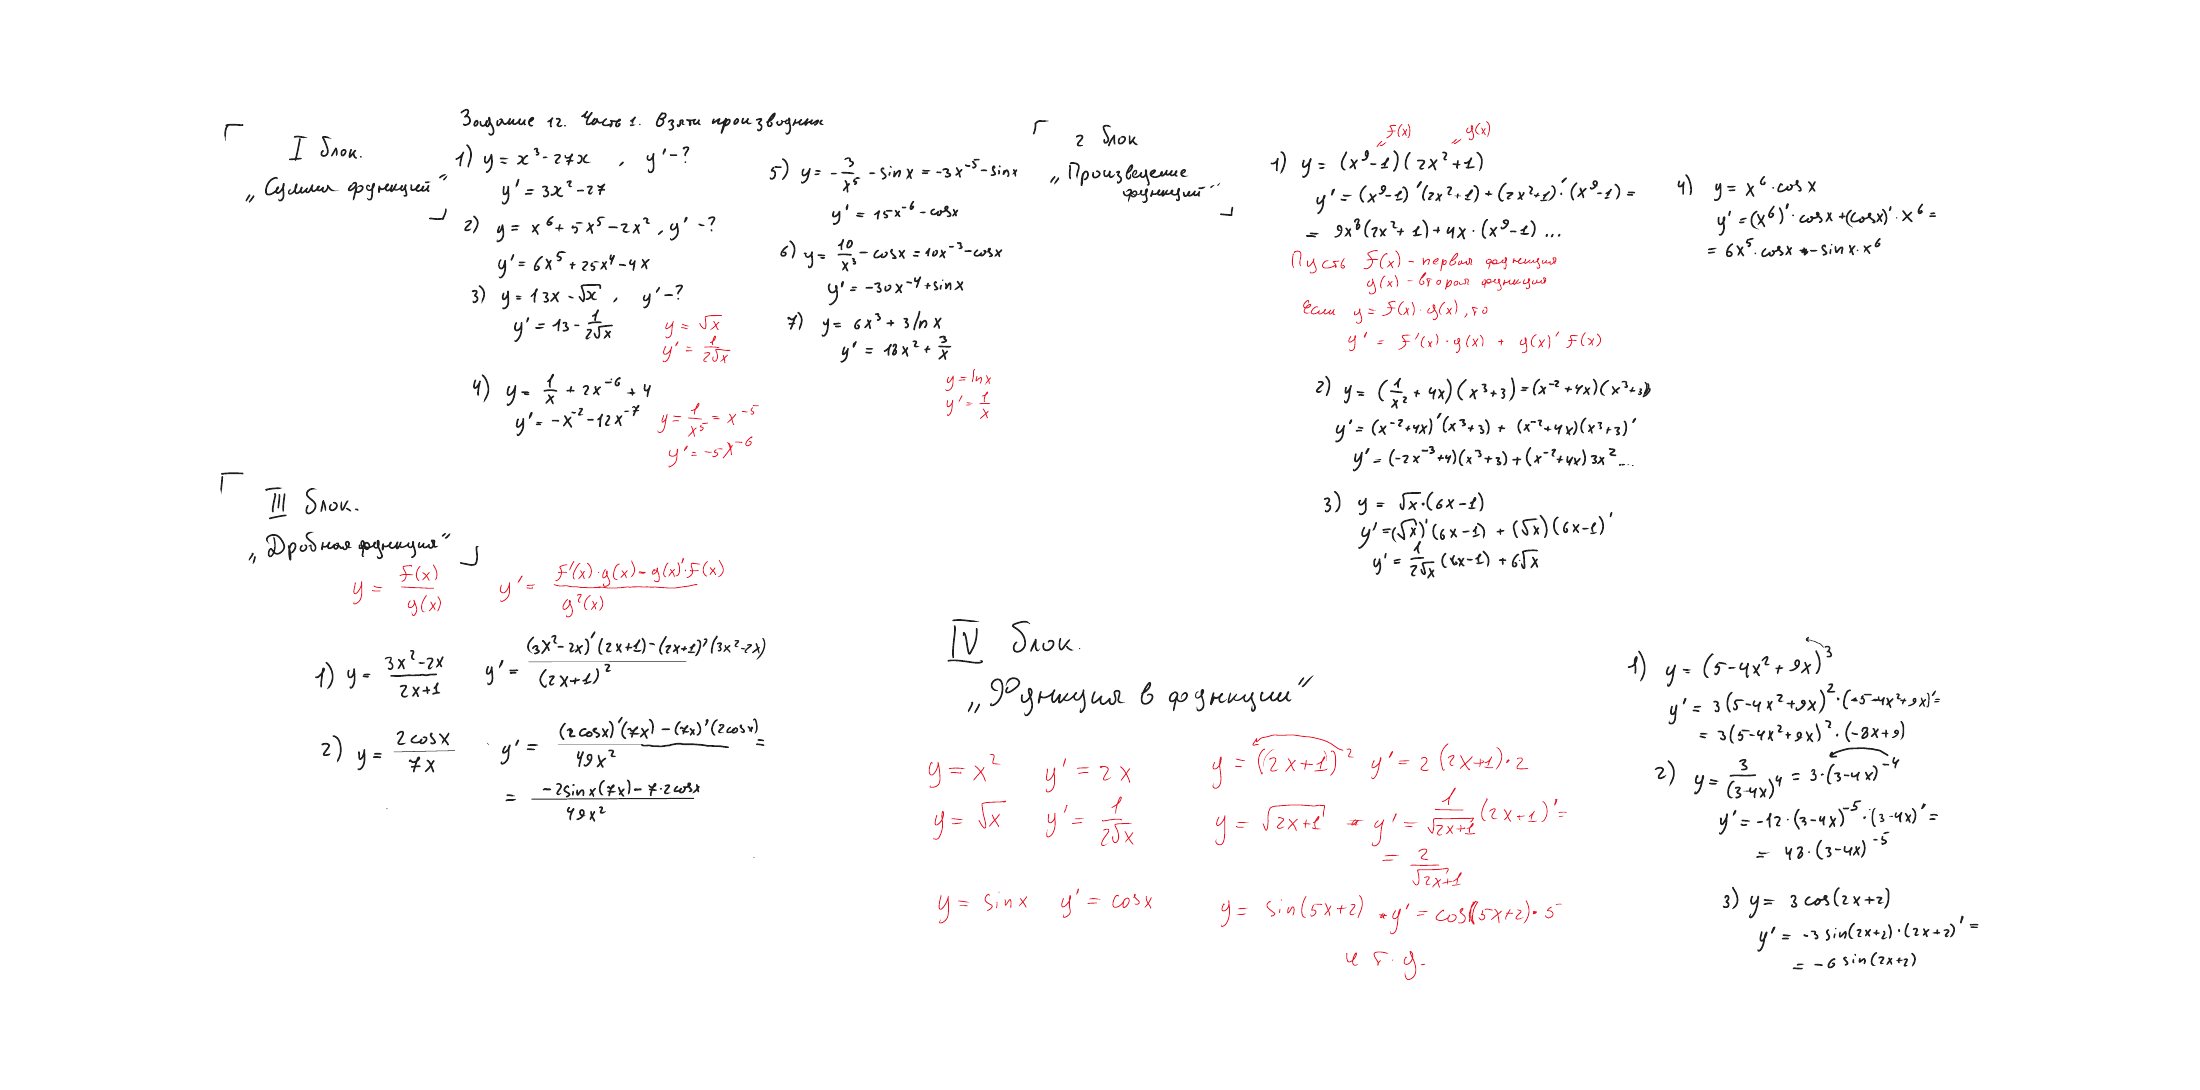 Задание 12. Часть 1. Взять производных
I блок.
„Сумма функций“
1) y = x³ - 27x , y' - ?
y' = 3x² - 27
2) y = x⁶ + 5x⁵ - 2x² , y' - ?
y' = 6x⁵ + 25x⁴ - 4x
3) y = 13x - √x , y' - ?
y' = 13 - 1/(2√x)
y = √x
y' = 1/(2√x)
4) y = 1/x + 2x⁻⁶ + 4
y' = -x⁻² - 12x⁻⁷
y = 1/x⁵ = x⁻⁵
y' = -5x⁻⁶
5) y = -3/x⁵ - sinx = -3x⁻⁵ - sinx
y' = 15x⁻⁶ - cosx
6) y = 10/x³ - cosx = 10x⁻³ - cosx
y' = -30x⁻⁴ + sinx
7) y = 6x³ + 3lnx
y' = 18x² + 3/x
y = lnx
y' = 1/x
2 блок
„Произведение
функций“
F(x) g(x)
1) y = (x⁹-1)(2x²+1)
y' = (x⁹-1)'(2x²+1) + (2x²+1)'·(x⁹-1) =
= 9x⁸(2x²+1) + 4x·(x⁹-1) ...
Пусть F(x) - первая функция
g(x) - вторая функция
Если y = F(x)·g(x), то
y' = F'(x)·g(x) + g(x)' F(x)
2) y = (1/x² + 4x)(x³+3) = (x⁻²+4x)(x³+3)
y' = (x⁻²+4x)'(x³+3) + (x⁻²+4x)(x³+3)'
y' = (-2x⁻³+4)(x³+3) + (x⁻²+4x)3x² ...
3) y = √x·(6x-1)
y' = (√x)'(6x-1) + (√x)(6x-1)'
y' = 1/(2√x) (6x-1) + 6√x
4) y = x⁶·cosx
y' = (x⁶)'·cosx + (cosx)'·x⁶ =
= 6x⁵·cosx - sinx·x⁶
III блок.
„Дробная функция“
y = F(x)/g(x) y' = (F'(x)·g(x) - g(x)'·F(x))/g²(x)
1) y = (3x²-2x)/(2x+1) y' = ((3x²-2x)'(2x+1) - (2x+1)'(3x²-2x))/(2x+1)²
2) y = 2cosx/7x y' = ((2cosx)'(7x) - (7x)'(2cosx))/49x² =
= (-2sinx(7x) - 7·2cosx)/49x²
IV блок.
„Функция в функции“
y = x² y' = 2x y = (2x+1)² y' = 2(2x+1)·2
y = √x y' = 1/(2√x) y = √(2x+1) y' = 1/√(2x+1) (2x+1)' =
= 2/√(2x+1)
y = sinx y' = cosx y = sin(5x+2) y' = cos(5x+2)·5
и т.д.
1) y = (5-4x²+9x)³
y' = 3(5-4x²+9x)²·(5-4x²+9x)' =
= 3(5-4x²+9x)²·(-8x+9)
2) y = 3/(3-4x)⁴ = 3·(3-4x)⁻⁴
y' = -12·(3-4x)⁻⁵·(3-4x)' =
= 48·(3-4x)⁻⁵
3) y = 3cos(2x+2)
y' = -3sin(2x+2)·(2x+2)' =
= -6sin(2x+2)